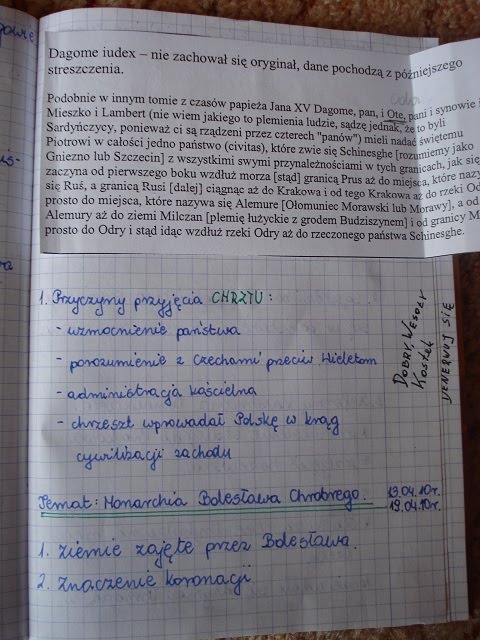 Dagome iudex – nie zachował się oryginał, dane pochodzą z późniejszego
streszczenia.
Podobnie w innym tomie z czasów papieża Jana XV Dagome, pan, i Ote, pani i synowie i
Mieszko i Lambert (nie wiem jakiego to plemienia ludzie, sądzę jednak, że to byli
Sardyńczycy, ponieważ ci są rządzeni przez czterech "panów") mieli nadać świętemu
Piotrowi w całości jedno państwo (civitas), które zwie się Schinesghe [rozumiemy jako
Gniezno lub Szczecin] z wszystkimi swymi przynależnościami w tych granicach, jak się
zaczyna od pierwszego boku wzdłuż morza [stąd] granicą Prus aż do miejsca, które nazy
się Ruś, a granicą Rusi [dalej] ciągnąc aż do Krakowa i od tego Krakowa aż do rzeki Od
prosto do miejsca, które nazywa się Alemure [Ołomuniec Morawski lub Morawy], a od
Alemury aż do ziemi Milczan [plemię łużyckie z grodem Budziszynem] i od granicy M
prosto do Odry i stąd idąc wzdłuż rzeki Odry aż do rzeczonego państwa Schinesghe.
1. Przyczyny przyjęcia CHRZTU:
- wzmocnienie państwa
- porozumienie z Czechami przeciw Wieletom
- administracja kościelna
- chrzest wprowadał Polskę w krąg
cywilizacji zachodu
DOBRY, WESOŁY
Kostek
DENERWUJ SIĘ
Temat: Monarchia Bolesława Chrobrego. 13.04.10r.
19.04.10r.
1. ziemie zajęte przez Bolesława.
2. Znaczenie koronacji